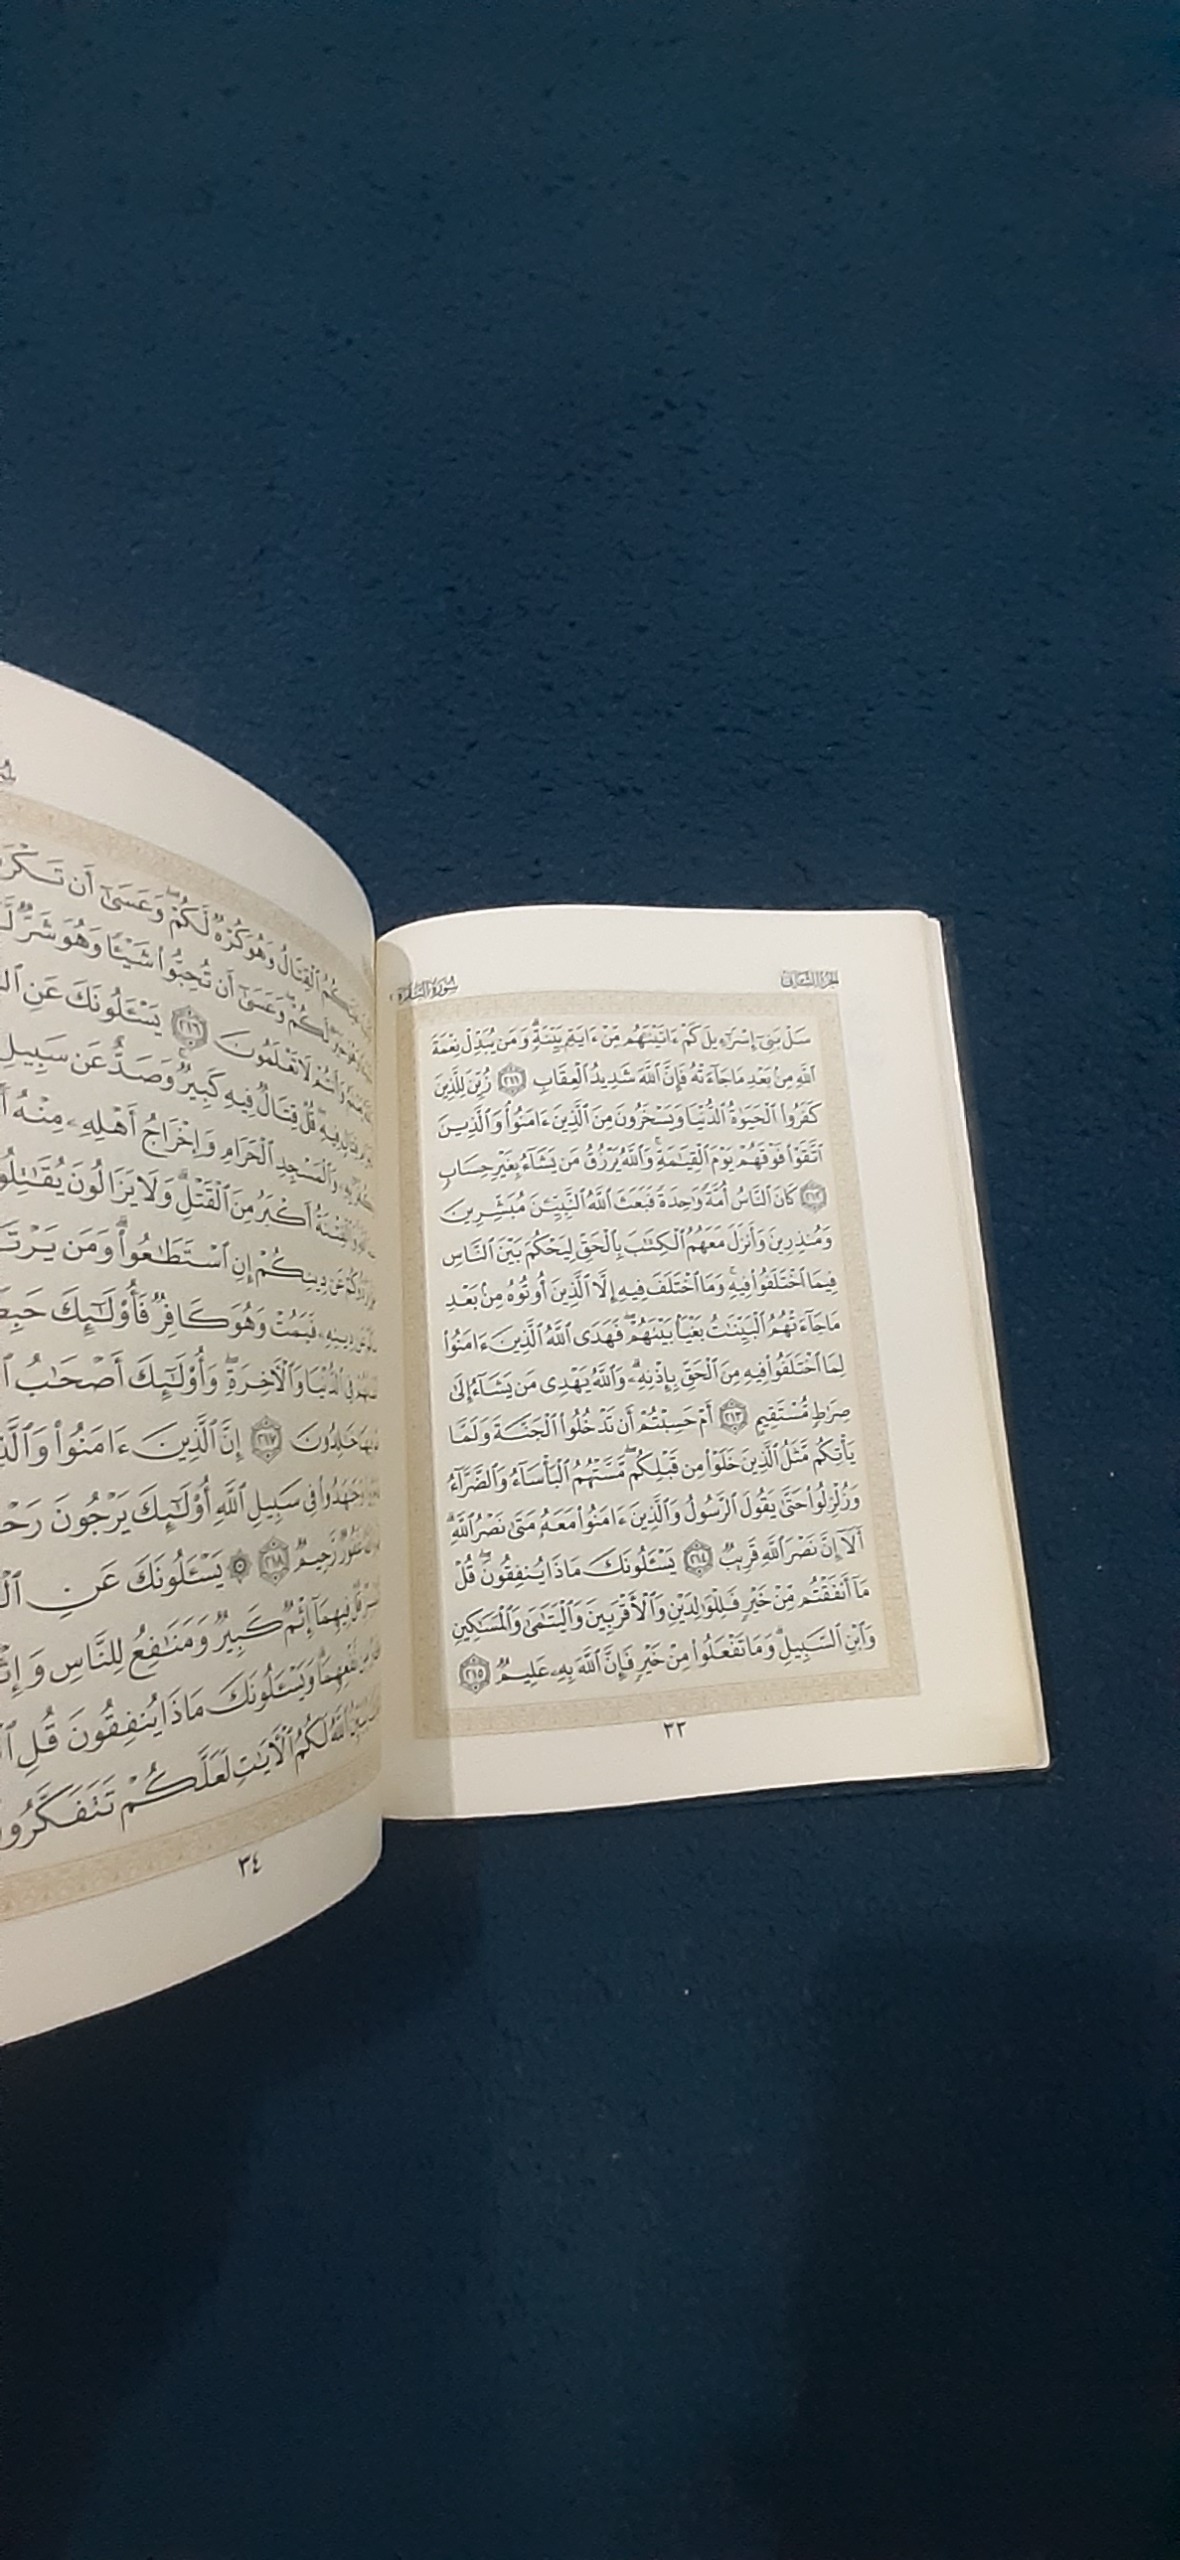 الجزء الثاني
سورة البقرة
سَلْ بَنِىٓ إِسْرَٰٓءِيلَ كَمْ ءَاتَيْنَٰهُم مِّنْ ءَايَةٍۭ بَيِّنَةٍۗ وَمَن يُبَدِّلْ نِعْمَةَ
ٱللَّهِ مِنۢ بَعْدِ مَا جَآءَتْهُ فَإِنَّ ٱللَّهَ شَدِيدُ ٱلْعِقَابِ ٢١١ زُيِّنَ لِلَّذِينَ
كَفَرُوا۟ ٱلْحَيَوٰةُ ٱلدُّنْيَا وَيَسْخَرُونَ مِنَ ٱلَّذِينَ ءَامَنُوا۟ وَٱلَّذِينَ
ٱتَّقَوْا۟ فَوْقَهُمْ يَوْمَ ٱلْقِيَٰمَةِۗ وَٱللَّهُ يَرْزُقُ مَن يَشَآءُ بِغَيْرِ حِسَابٍ
٢١٢ كَانَ ٱلنَّاسُ أُمَّةً وَٰحِدَةً فَبَعَثَ ٱللَّهُ ٱلنَّبِيِّۦنَ مُبَشِّرِينَ
وَمُنذِرِينَ وَأَنزَلَ مَعَهُمُ ٱلْكِتَٰبَ بِٱلْحَقِّ لِيَحْكُمَ بَيْنَ ٱلنَّاسِ
فِيمَا ٱخْتَلَفُوا۟ فِيهِۚ وَمَا ٱخْتَلَفَ فِيهِ إِلَّا ٱلَّذِينَ أُوتُوهُ مِنۢ بَعْدِ
مَا جَآءَتْهُمُ ٱلْبَيِّنَٰتُ بَغْيًۢا بَيْنَهُمْۖ فَهَدَى ٱللَّهُ ٱلَّذِينَ ءَامَنُوا۟
لِمَا ٱخْتَلَفُوا۟ فِيهِ مِنَ ٱلْحَقِّ بِإِذْنِهِۦۗ وَٱللَّهُ يَهْدِى مَن يَشَآءُ إِلَىٰ
صِرَٰطٍ مُّسْتَقِيمٍ ٢١٣ أَمْ حَسِبْتُمْ أَن تَدْخُلُوا۟ ٱلْجَنَّةَ وَلَمَّا
يَأْتِكُم مَّثَلُ ٱلَّذِينَ خَلَوْا۟ مِن قَبْلِكُمۖ مَّسَّتْهُمُ ٱلْبَأْسَآءُ وَٱلضَّرَّآءُ
وَزُلْزِلُوا۟ حَتَّىٰ يَقُولَ ٱلرَّسُولُ وَٱلَّذِينَ ءَامَنُوا۟ مَعَهُۥ مَتَىٰ نَصْرُ ٱللَّهِۗ
أَلَآ إِنَّ نَصْرَ ٱللَّهِ قَرِيبٌ ٢١٤ يَسْـَٔلُونَكَ مَاذَا يُنفِقُونَۖ قُلْ
مَآ أَنفَقْتُم مِّنْ خَيْرٍ فَلِلْوَٰلِدَيْنِ وَٱلْأَقْرَبِينَ وَٱلْيَتَٰمَىٰ وَٱلْمَسَٰكِينِ
وَٱبْنِ ٱلسَّبِيلِۗ وَمَا تَفْعَلُوا۟ مِنْ خَيْرٍ فَإِنَّ ٱللَّهَ بِهِۦ عَلِيمٌ ٢١٥
٣٣
ٱلْقِتَالُ وَهُوَ كُرْهٌ لَّكُمْۖ وَعَسَىٰٓ أَن
لَّكُمْۖ وَعَسَىٰٓ أَن تُحِبُّوا۟ شَيْـًٔا وَهُوَ شَرٌّ
وَأَنتُمْ لَا تَعْلَمُونَ ٢١٦ يَسْـَٔلُونَكَ عَنِ
فِيهِۖ قُلْ قِتَالٌ فِيهِ كَبِيرٌۖ وَصَدٌّ عَن سَبِيلِ
وَٱلْمَسْجِدِ ٱلْحَرَامِ وَإِخْرَاجُ أَهْلِهِۦ مِنْهُ
وَٱلْفِتْنَةُ أَكْبَرُ مِنَ ٱلْقَتْلِۗ وَلَا يَزَالُونَ
عَن دِينِكُمْ إِنِ ٱسْتَطَٰعُوا۟ۚ وَمَن
دِينِهِۦ فَيَمُتْ وَهُوَ كَافِرٌ فَأُو۟لَٰٓئِكَ
فِى ٱلدُّنْيَا وَٱلْـَٔاخِرَةِۖ وَأُو۟لَٰٓئِكَ أَصْحَٰبُ
خَٰلِدُونَ ٢١٧ إِنَّ ٱلَّذِينَ ءَامَنُوا۟
وَجَٰهَدُوا۟ فِى سَبِيلِ ٱللَّهِ أُو۟لَٰٓئِكَ يَرْجُونَ
غَفُورٌ رَّحِيمٌ ٢١٨ ۞ يَسْـَٔلُونَكَ عَنِ
قُلْ فِيهِمَآ إِثْمٌ كَبِيرٌ وَمَنَٰفِعُ لِلنَّاسِ
نَّفْعِهِمَاۗ وَيَسْـَٔلُونَكَ مَاذَا يُنفِقُونَ قُلِ
ٱللَّهُ لَكُمُ ٱلْـَٔايَٰتِ لَعَلَّكُمْ
٣٤